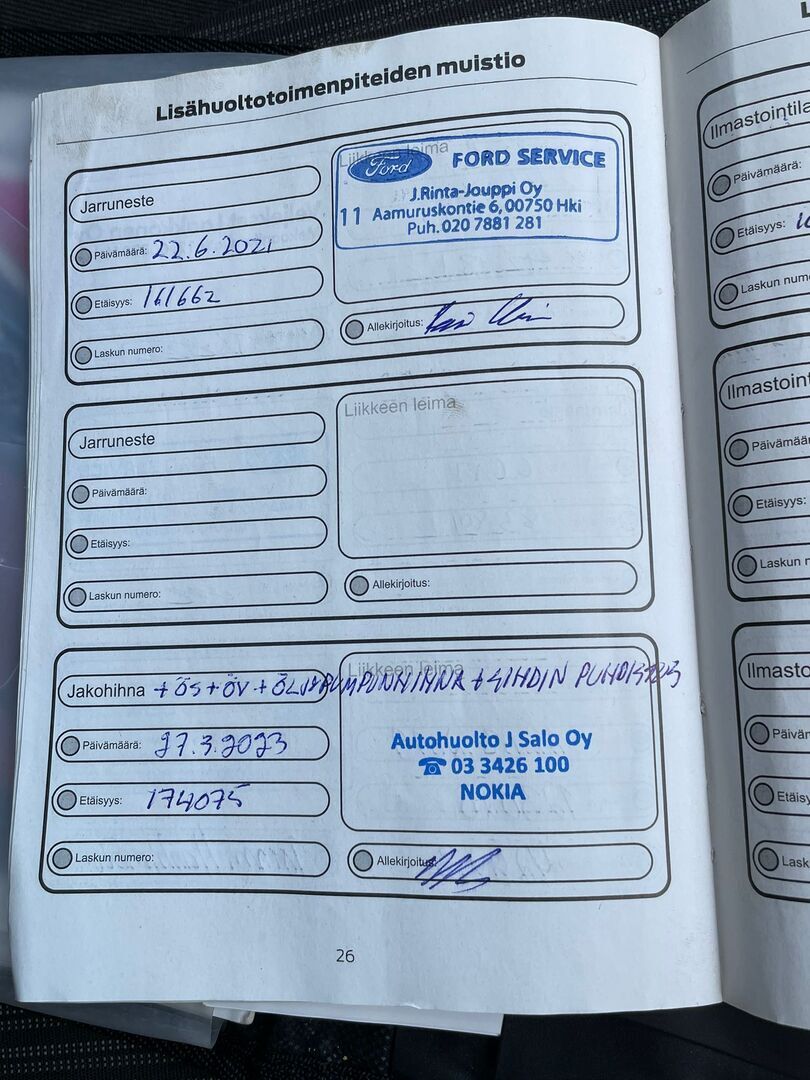 Lisähuoltotoimenpiteiden muistio
Jarruneste
Päivämäärä: 22.6.2021
Etäisyys: 161662
Laskun numero:
Liikkeen leima
Ford FORD SERVICE
J.Rinta-Jouppi Oy
11 Aamuruskontie 6, 00750 Hki
Puh. 020 7881 281
Allekirjoitus:
Jarruneste
Päivämäärä:
Etäisyys:
Laskun numero:
Liikkeen leima
Allekirjoitus:
Jakohihna + ÖS + ÖV + ÖLJYPUMPUNHIHNA + SIHDIN PUHDISTUS
Päivämäärä: 27.3.2023
Etäisyys: 174075
Laskun numero:
Liikkeen leima
Autohuolto J Salo Oy
☎ 03 3426 100
NOKIA
Allekirjoitus:
26
Päivämäärä:
Etäisyys:
Etäisyys: